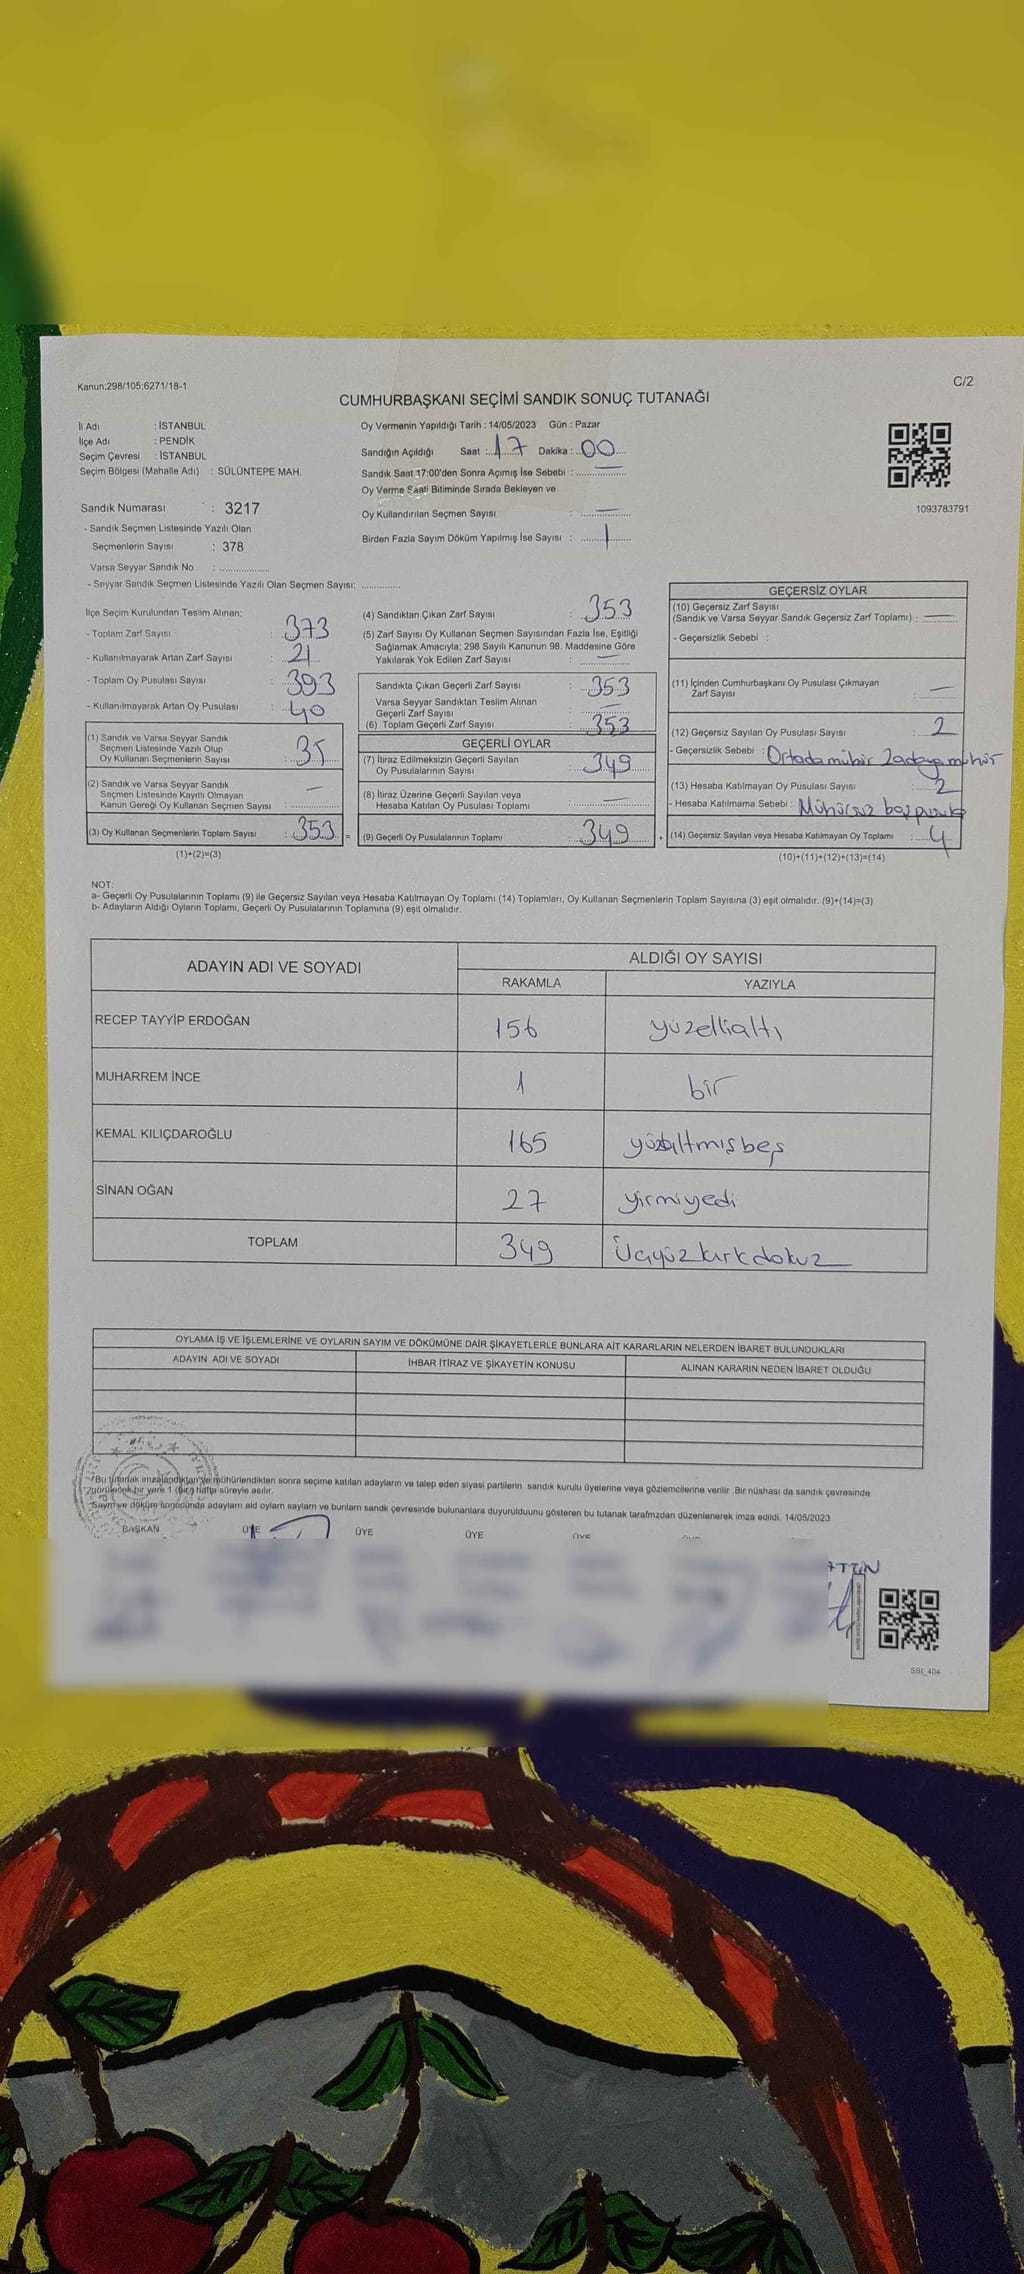 Kanun;298/105;6271/18-1
C/2
CUMHURBAŞKANI SEÇİMİ SANDIK SONUÇ TUTANAĞI
İl Adı : İSTANBUL
İlçe Adı : PENDİK
Seçim Çevresi : İSTANBUL
Seçim Bölgesi (Mahalle Adı) : SÜLÜNTEPE MAH.
Oy Vermenin Yapıldığı Tarih : 14/05/2023 Gün : Pazar
Sandığın Açıldığı Saat : 17 Dakika : 00
Sandık Saat 17:00'den Sonra Açımış İse Sebebi : —
Oy Verme Saati Bitiminde Sırada Bekleyen ve
Oy Kullandırılan Seçmen Sayısı : —
Birden Fazla Sayım Döküm Yapılmış İse Sayısı : 1
1093783791
Sandık Numarası : 3217
- Sandık Seçmen Listesinde Yazılı Olan
Seçmenlerin Sayısı : 378
Varsa Seyyar Sandık No : ....................
- Seyyar Sandık Seçmen Listesinde Yazılı Olan Seçmen Sayısı: ...............
İlçe Seçim Kurulundan Teslim Alınan;
- Toplam Zarf Sayısı : 373
- Kullanılmayarak Artan Zarf Sayısı : 21
- Toplam Oy Pusulası Sayısı : 393
- Kullanılmayarak Artan Oy Pusulası : 40
(1) Sandık ve Varsa Seyyar Sandık
Seçmen Listesinde Yazılı Olup
Oy Kullanan Seçmenlerin Sayısı : 35
(2) Sandık ve Varsa Seyyar Sandık
Seçmen Listesinde Kayıtlı Olmayan
Kanun Gereği Oy Kullanan Seçmen Sayısı : —
(3) Oy Kullanan Seçmenlerin Toplam Sayısı : 353 =
(1)+(2)=(3)
(4) Sandıktan Çıkan Zarf Sayısı : 353
(5) Zarf Sayısı Oy Kullanan Seçmen Sayısından Fazla İse, Eşitliği
Sağlamak Amacıyla; 298 Sayılı Kanunun 98. Maddesine Göre
Yakılarak Yok Edilen Zarf Sayısı : —
Sandıkta Çıkan Geçerli Zarf Sayısı : 353
Varsa Seyyar Sandıktan Teslim Alınan
Geçerli Zarf Sayısı : —
(6) Toplam Geçerli Zarf Sayısı : 353
GEÇERLİ OYLAR
(7) İtiraz Edilmeksizin Geçerli Sayılan
Oy Pusulalarının Sayısı : 349
(8) İtiraz Üzerine Geçerli Sayılan veya
Hesaba Katılan Oy Pusulası Toplamı : —
(9) Geçerli Oy Pusulalarının Toplamı : 349 +
GEÇERSİZ OYLAR
(10) Geçersiz Zarf Sayısı
(Sandık ve Varsa Seyyar Sandık Geçersiz Zarf Toplamı) : —
- Geçersizlik Sebebi :
(11) İçinden Cumhurbaşkanı Oy Pusulası Çıkmayan
Zarf Sayısı : —
(12) Geçersiz Sayılan Oy Pusulası Sayısı : 2
- Geçersizlik Sebebi : Ortada mühür 2 adaya mühür
(13) Hesaba Katılmayan Oy Pusulası Sayısı : 2
- Hesaba Katılmama Sebebi : Mühürsüz boş pusula
(14) Geçersiz Sayılan veya Hesaba Katılmayan Oy Toplamı : 4
(10)+(11)+(12)+(13)=(14)
NOT:
a- Geçerli Oy Pusulalarının Toplamı (9) ile Geçersiz Sayılan veya Hesaba Katılmayan Oy Toplamı (14) Toplamları, Oy Kullanan Seçmenlerin Toplam Sayısına (3) eşit olmalıdır. (9)+(14)=(3)
b- Adayların Aldığı Oyların Toplamı, Geçerli Oy Pusulalarının Toplamına (9) eşit olmalıdır.
ADAYIN ADI VE SOYADI ALDIĞI OY SAYISI
RAKAMLA YAZIYLA
RECEP TAYYİP ERDOĞAN 156 yüzellialtı
MUHARREM İNCE 1 bir
KEMAL KILIÇDAROĞLU 165 yüzaltmışbeş
SİNAN OĞAN 27 yirmiyedi
TOPLAM 349 Üçyüzkırkdokuz
OYLAMA İŞ VE İŞLEMLERİNE VE OYLARIN SAYIM VE DÖKÜMÜNE DAİR ŞİKAYETLERLE BUNLARA AİT KARARLARIN NELERDEN İBARET BULUNDUKLARI
ADAYIN ADI VE SOYADI İHBAR İTİRAZ VE ŞİKAYETİN KONUSU ALINAN KARARIN NEDEN İBARET OLDUĞU
Bu tutanak imzalandıktan ve mühürlendikten sonra seçime katılan adayların ve talep eden siyasi partilerin sandık kurulu üyelerine veya gözlemcilerine verilir .Bir nüshası da sandık çevresinde
görülecek bir yere 1 (bir) hafta süreyle asılır.
Sayım ve döküm sonucunda adayların ald oyların sayların ve bunların sandk çevresinde bulunanlara duyurulduunu gösteren bu tutanak tarafmzdan düzenlenerek imza edildi. 14/05/2023
BAŞKAN ÜYE ÜYE ÜYE ÜYE
SSI_404